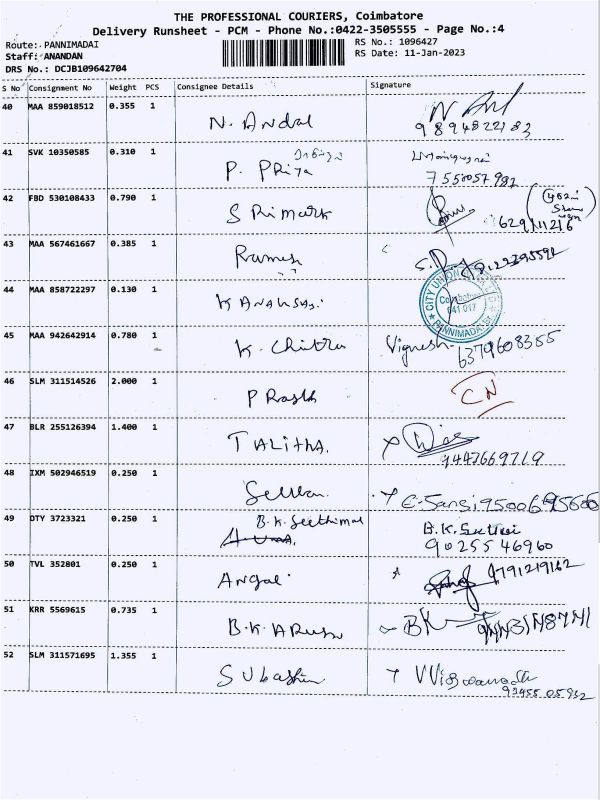 THE PROFESSIONAL COURIERS, Coimbatore
Delivery Runsheet - PCM - Phone No.:0422-3505555 - Page No.:4
Route: PANNIMADAI
RS No.: 1096427
Staff: ANANDAN
RS Date: 11-Jan-2023
DRS No.: DCJB109642704
S No Consignment No Weight PCS Consignee Details Signature
40 MAA 859018512 0.355 1 N. Andal
9894822183
41 SVK 10350585 0.310 1 P. PRiya
42 FBD 530108433 0.790 1 SRimark
43 MAA 567461667 0.385 1 Ramesh
44 MAA 858722297 0.130 1
CITY UNION
Coimbatore
641 017
PANNIMADAI
45 MAA 942642914 0.780 1 K. Chitra Vignesh
6379608355
46 SLM 311514526 2.000 1 CN
47 BLR 255126394 1.400 1 TALITHA.
9447669719
48 IXM 502946519 0.250 1 Selvan
49 OTY 3723321 0.250 1 B.K. Seethimal
B.K.
9025546960
50 TVL 352801 0.250 1 Angai
9791219162
51 KRR 5569615 0.735 1 B.K.
52 SLM 311571695 1.355 1 Subashin
93455 05932